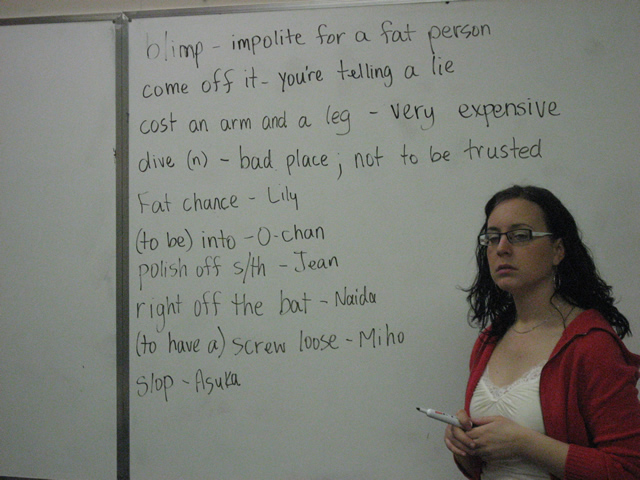 blimp - impolite for a fat person
come off it - you're telling a lie
cost an arm and a leg - very expensive
dive (n) - bad place; not to be trusted
Fat chance - Lily
(to be) into - O-chan
polish off s/th - Jean
right off the bat - Naida
(to have a) screw loose - Miho
slop - Asuka